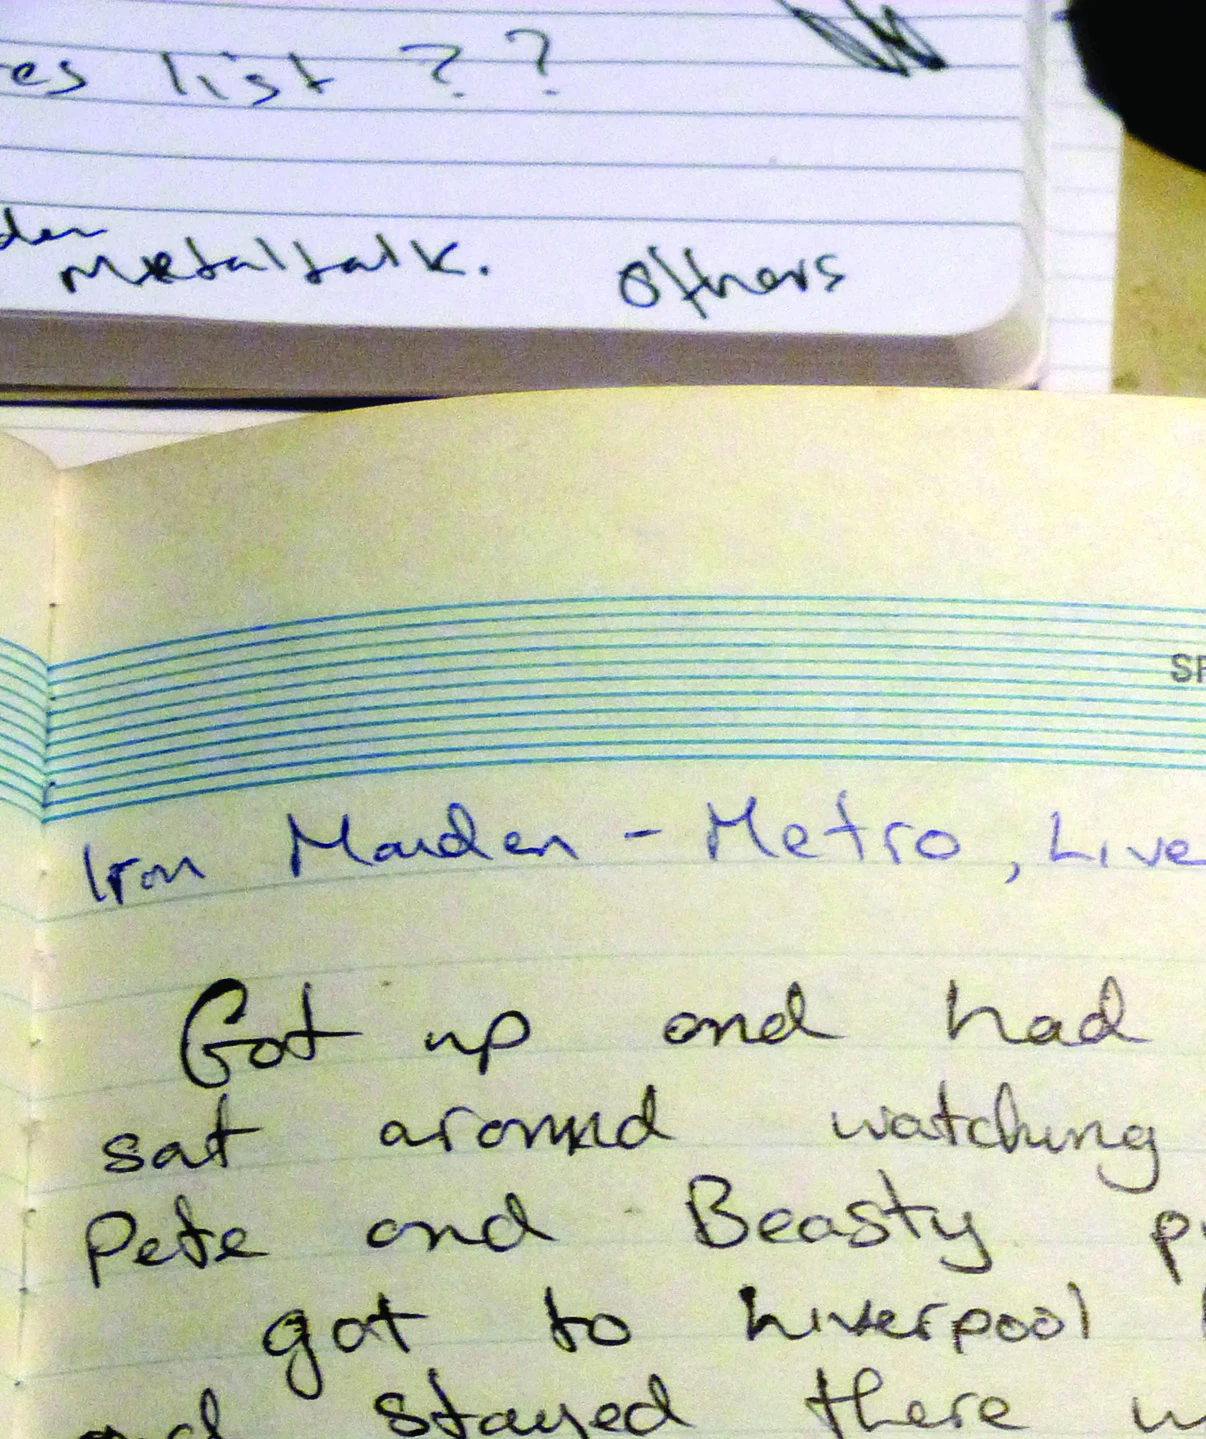 es list ??
den
Metaltalk. others
SP
Iron Maiden - Metro, Live
Got up and had
sat around watching
Pete and Beasty p
got to Liverpool
and stayed there w